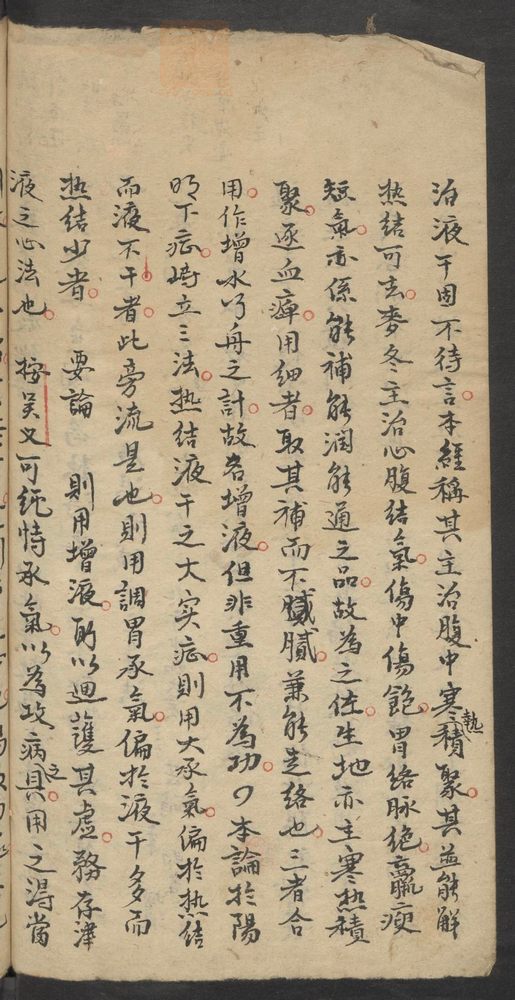 治液干固不待言本經稱其主治腹中寒熱積聚其並能解
热結可玄麥冬主治心腹結氣傷中傷飽胃络脉绝羸瘦
短氣亦係能補能润能通之品故為之佐生地亦主寒热積
聚逐血痺用细者取其補而不膩兼能走络也三者合
用作增水行舟之計故名增液但非重用不為功 本論於陽
明下症峙立三法热結液干之大实症則用大承氣偏於热结
而液不干者此旁流是也則用調胃承氣偏於液干多而
热结少者 要論 則用增液所以迴護其虚務存津
液之心法也 按吴又可纯恃承氣以為攻病之具用之得當